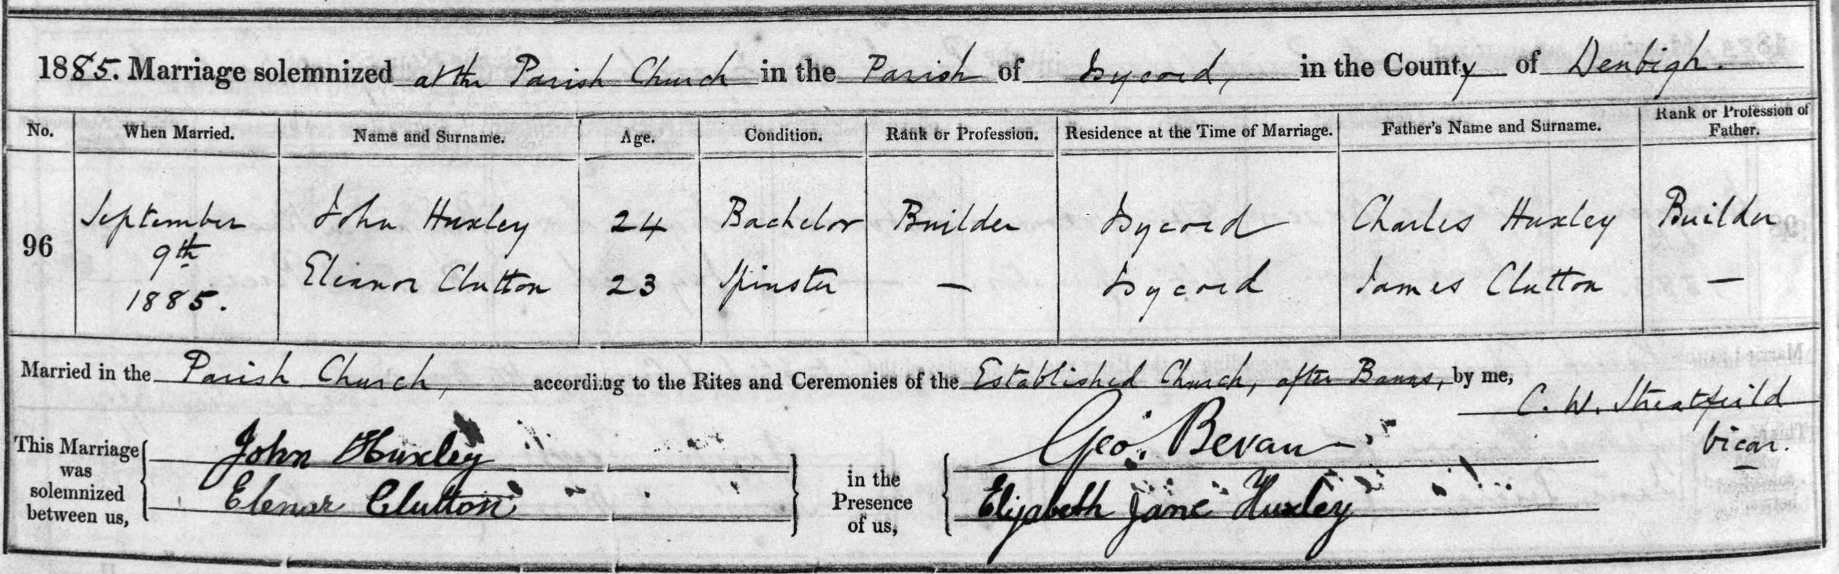 1885. Marriage solemnized at the Parish Church in the Parish of Isycoed, in the County of Denbigh.
No. When Married. Name and Surname. Age. Condition. Rank or Profession. Residence at the Time of Marriage. Father's Name and Surname. Rank or Profession of Father.
96 September 9th 1885. John Huxley 24 Bachelor Builder Isycoed Charles Huxley Builder
Eleanor Clutton 23 Spinster — Isycoed James Clutton —
Married in the Parish Church, according to the Rites and Ceremonies of the Established Church, after Banns, by me,
C. W. Streatfield
Vicar.
This Marriage was solemnized between us, John Huxley
Elenor Clutton
in the Presence of us, Geo. Bevan
Elizabeth Jane Huxley